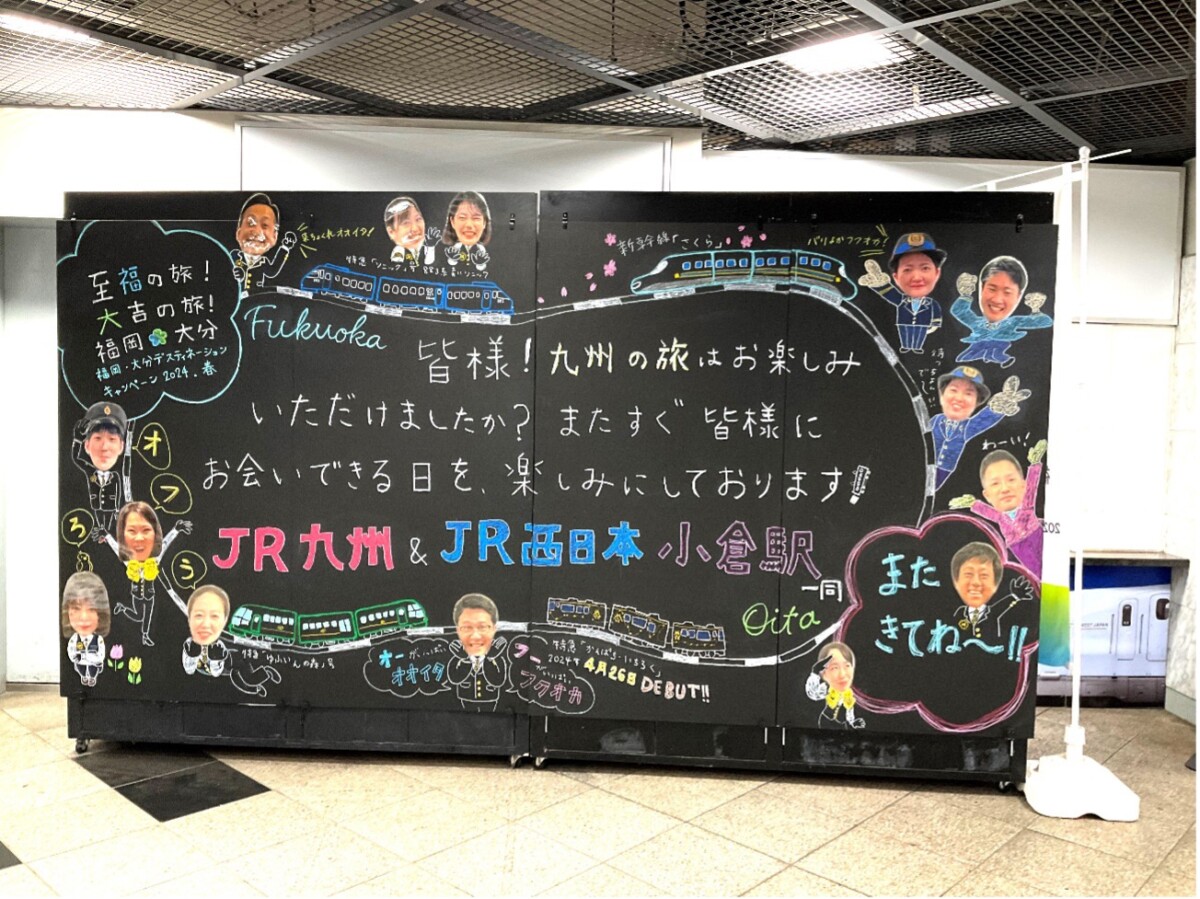 至福の旅!
大吉の旅!
福岡 大分
福岡・大分デスティネーション
キャンペーン 2024.春
Fukuoka
新幹線「さくら」
バリよかフクオカ!
皆様!九州の旅はお楽しみ
いただけましたか?またすぐ皆様に
お会いできる日を、楽しみにしております!
JR九州 & JR西日本 小倉駅
一同
Oita
オ
フ
ろ
う
わーい!
また
きてね〜!!
特急「ゆふいんの森」号
オーがいっぱい
オオイタ
フーがいっぱい
フクオカ
2024年 4月26日 DEBUT!!